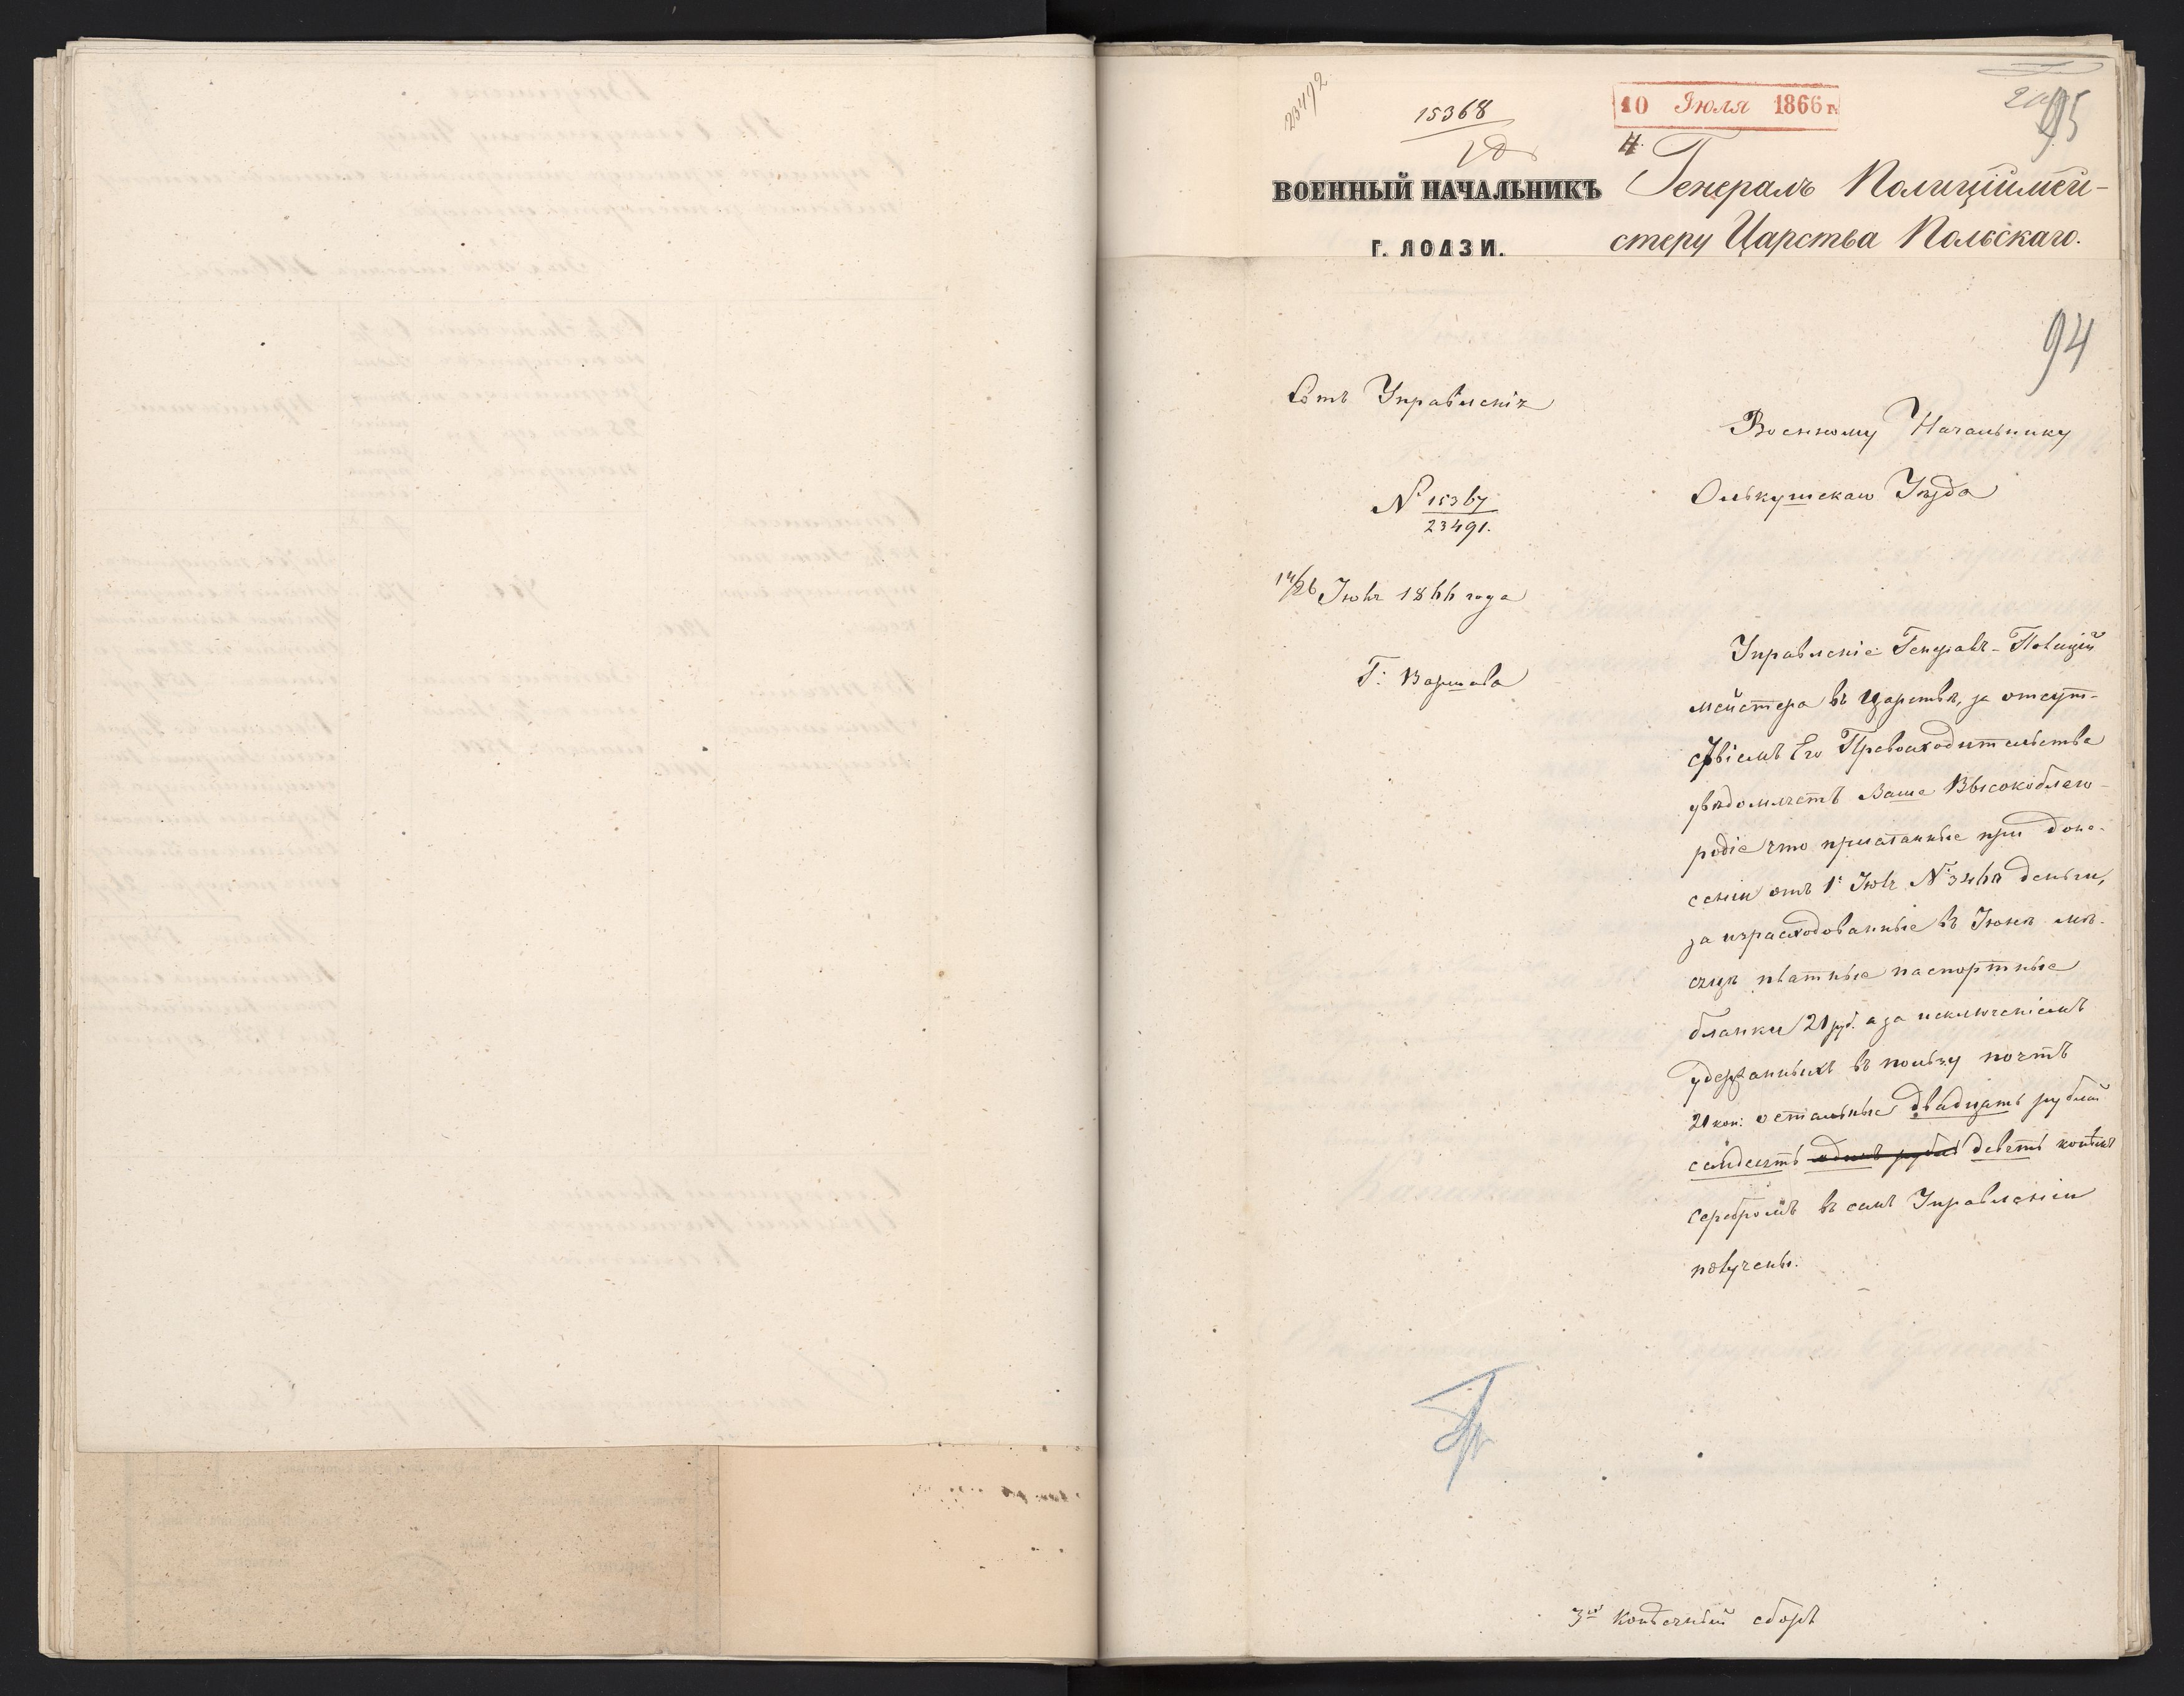 23492
15368
10 Июля 1866 г.
95
ВОЕННЫЙ НАЧАЛЬНИКЪ
Г. ЛОДЗИ.
Генералъ Полиціймей-
стеру Царства Польскаго.
94
Отъ Управленія
№ 15367
23491.
14/26 Іюля 1866 года
Г: Варшава
Военному Начальнику
Олькушскаго Уѣзда
Управленіе Генералъ-Поліцій
мейстера въ Царствѣ, за отсут-
ствіемъ Его Превосходительства
увѣдомляетъ Ваше Высокоблаго-
родіе что присланные при доне-
сеніи отъ 1 Іюля № деньги,
за израсходованные въ Іюнѣ мѣ-
сяцѣ платные паспортные
бланки 21 руб. а за исключеніемъ
удержанныхъ въ пользу почтъ
21 коп: остальные двадцать рублей
семдесятъ одинъ рубль девять копѣекъ
серебромъ въ семъ Управленіи
получены.
3хъ Копѣечный сборъ